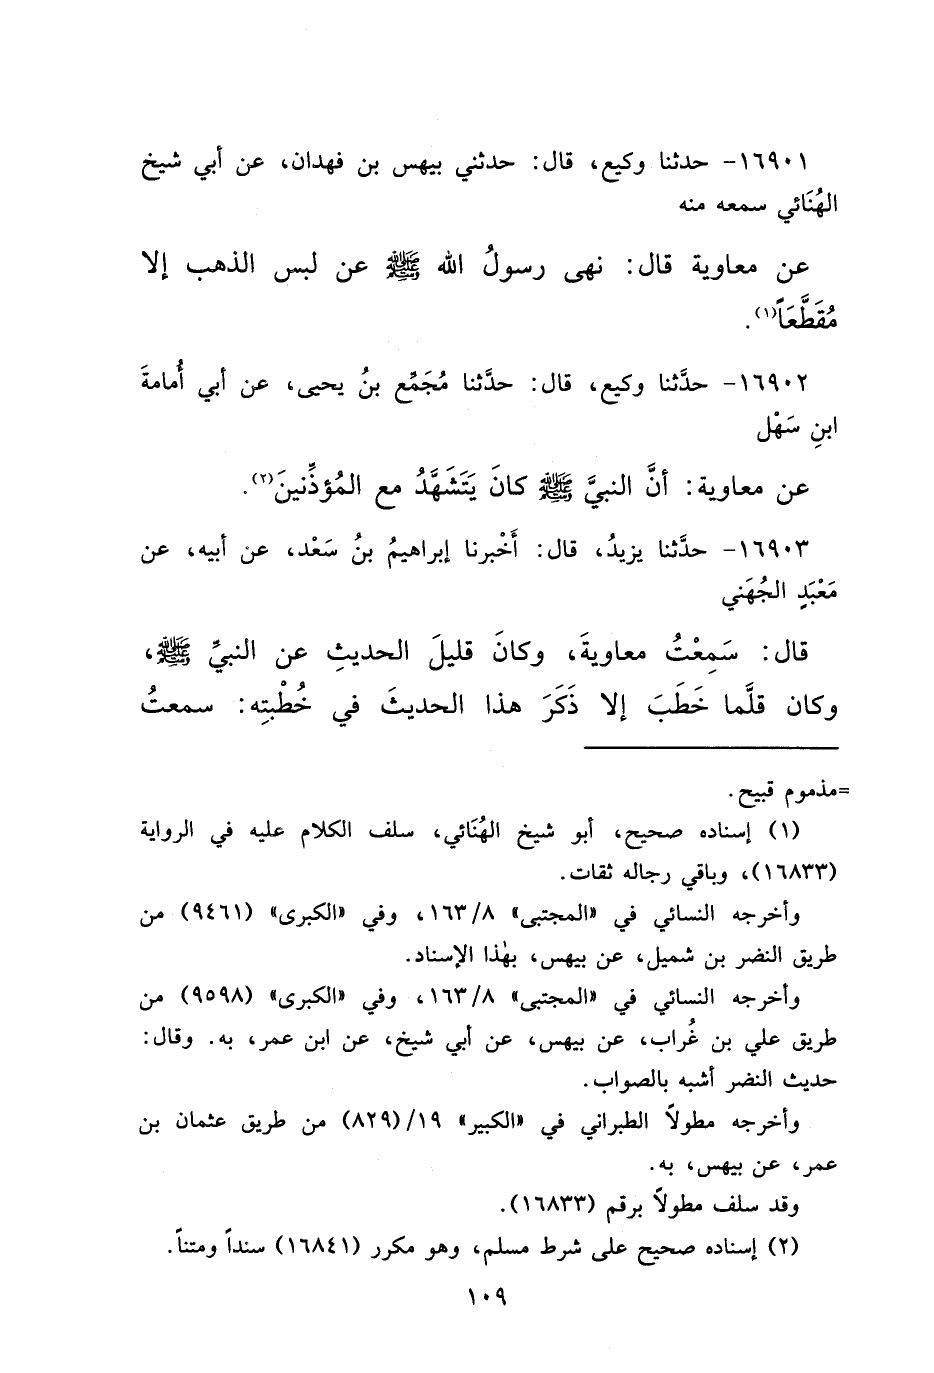 ١٦٩٠١- حدثنا وكيع، قال: حدثني بيهس بن فهدان، عن أبي شيخ
الهُنَائي سمعه منه
عن معاوية قال: نهى رسولُ الله ﷺ عن لبس الذهب إلا
مُقَطَّعَاً(١).
١٦٩٠٢- حدَّثنا وكيع، قال: حدَّثنا مُجَمِّع بنُ يحيى، عن أبي أُمامةَ
ابنِ سَهْل
عن معاوية: أنَّ النبيَّ ﷺ كانَ يَتَشَهَّدُ مع المُؤذِّنينَ(٢).
١٦٩٠٣- حدَّثنا يزيدُ، قال: أَخْبرنا إبراهيمُ بنُ سَعْد، عن أبيه، عن
مَعْبَدٍ الجُهَني
قال: سَمِعْتُ معاويةَ، وكانَ قليلَ الحديثِ عن النبيِّ ﷺ،
وكان قلَّما خَطَبَ إلا ذَكَرَ هذا الحديثَ في خُطْبتِه: سمعتُ
=مذموم قبيح.
(١) إسناده صحيح، أبو شيخ الهُنَائي، سلف الكلام عليه في الرواية
(١٦٨٣٣)، وباقي رجاله ثقات.
وأخرجه النسائي في «المجتبى» ١٦٣/٨، وفي «الكبرى» (٩٤٦١) من
طريق النضر بن شميل، عن بيهس، بهٰذا الإسناد.
وأخرجه النسائي في «المجتبى» ١٦٣/٨، وفي «الكبرى» (٩٥٩٨) من
طريق علي بن غُراب، عن بيهس، عن أبي شيخ، عن ابن عمر، به. وقال:
حديث النضر أشبه بالصواب.
وأخرجه مطولاً الطبراني في «الكبير» ١٩/(٨٢٩) من طريق عثمان بن
عمر، عن بيهس، به.
وقد سلف مطولاً برقم (١٦٨٣٣).
(٢) إسناده صحيح على شرط مسلم، وهو مكرر (١٦٨٤١) سنداً ومتناً.
١٠٩